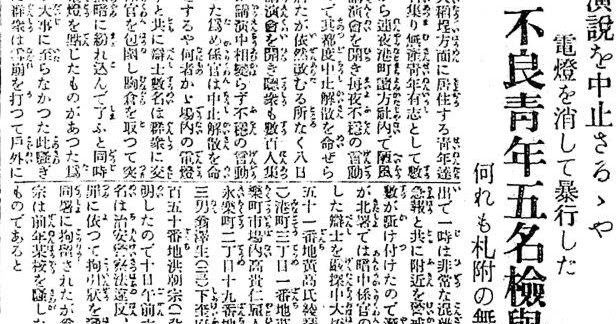 演説を中止さるゝや
電燈を消して暴行した
不良青年五名檢擧
何れも札附の無
大稻埕方面に居住する青年達
集り無産青年有志として數
ら連夜港町讀方社內で陋風
講演會を開き毎夜不穩の言動
て其都度中止解散を命ぜら
たが依然敢むる所なく八日
講演會を開き聽衆も數百人集
講演中相變らず不穩の言動
た爲め係官は中止解散を命
するや何者か場內の電燈
と共に辯士數名は群衆に交
官を包圍し胸倉を取つて突
暗に紛れ込んで了ふと同時
燈を點じたものがあつた爲
大事に至らなかつた此騷ぎ
群衆は雪崩を打つて戶外に
出で一時は非常な混雜
急報と共に附近を警戒
數が駈け付けたので漸
が北署では暗中係官の
した辯士を嚴探中大
五十一番地黃高氏綾
港町三丁目一番地
樂町市場內高貴仁雇人
永樂町二丁目十九番地
三男翁澤生下奎府
百五十番地洪朝宗
明したので十日午前
名は治安警察法違反
罪に依つて拘引狀を
同署に拘留されたが
宗は前年某校を騷し
ものであると